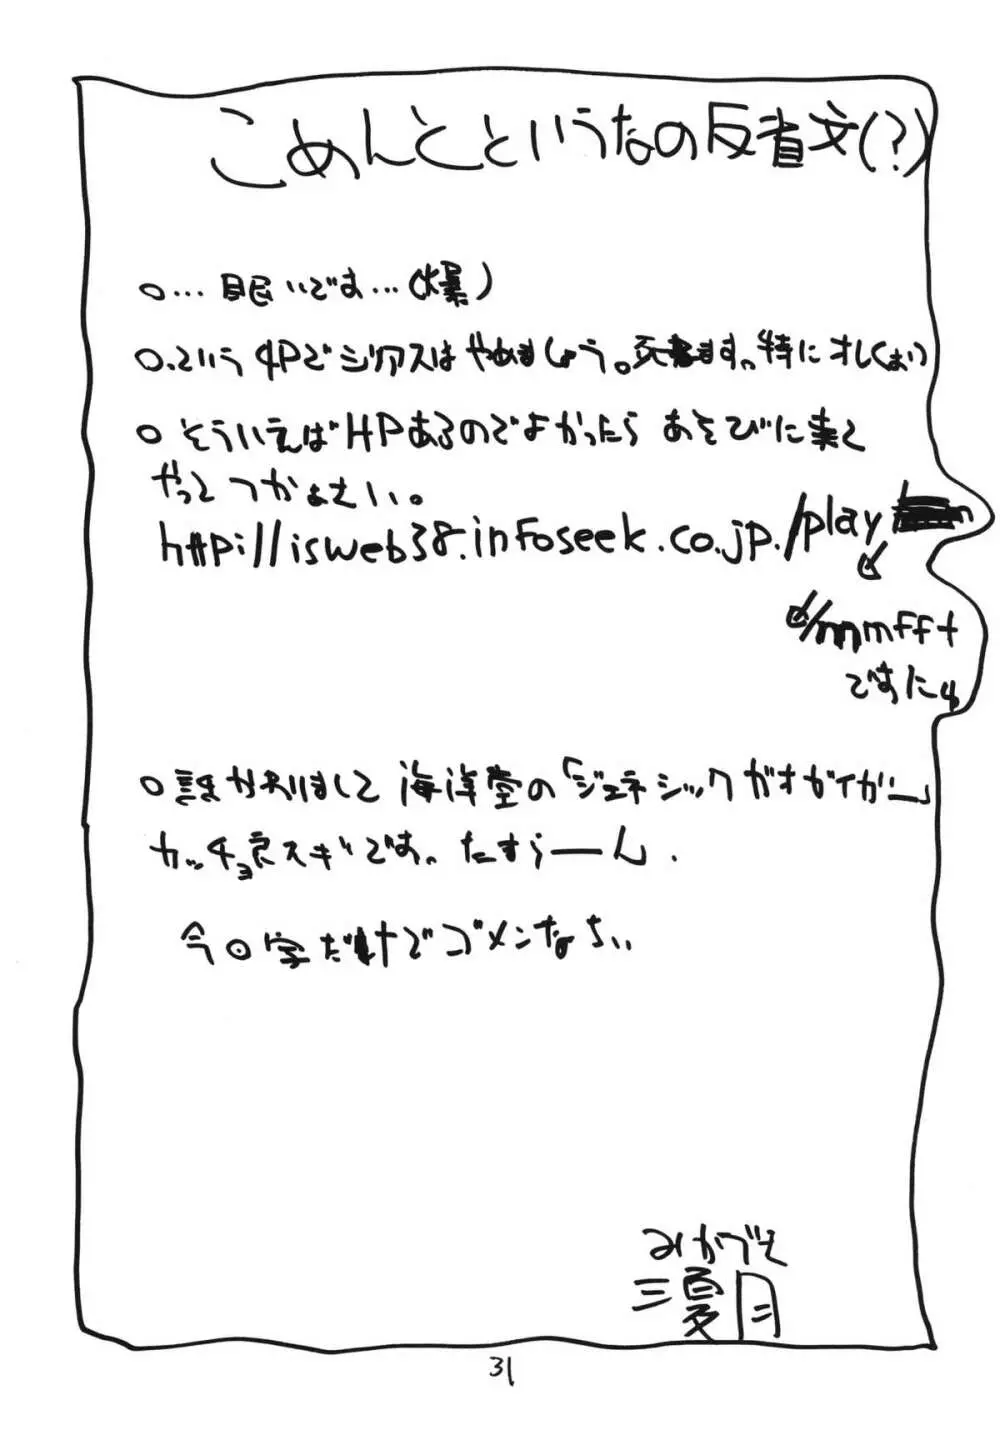 こめんとというなの反省文(?)
○…眠いです…(爆)
○.という4Pでシリアスはやめましょう。死にます。特にオレ
○そういえばHPあるのでよかったらあそびに来て
やってつかぁさい。
http://isweb38.infoseek.co.jp./play
/mmfft
ですにゅ
○誰か作りまして海洋堂の「ジェネシックガオガイガー」
カッチョ良スギです。たすらーん.
今回字だけでゴメンなちい
みかづき
三夏月
31